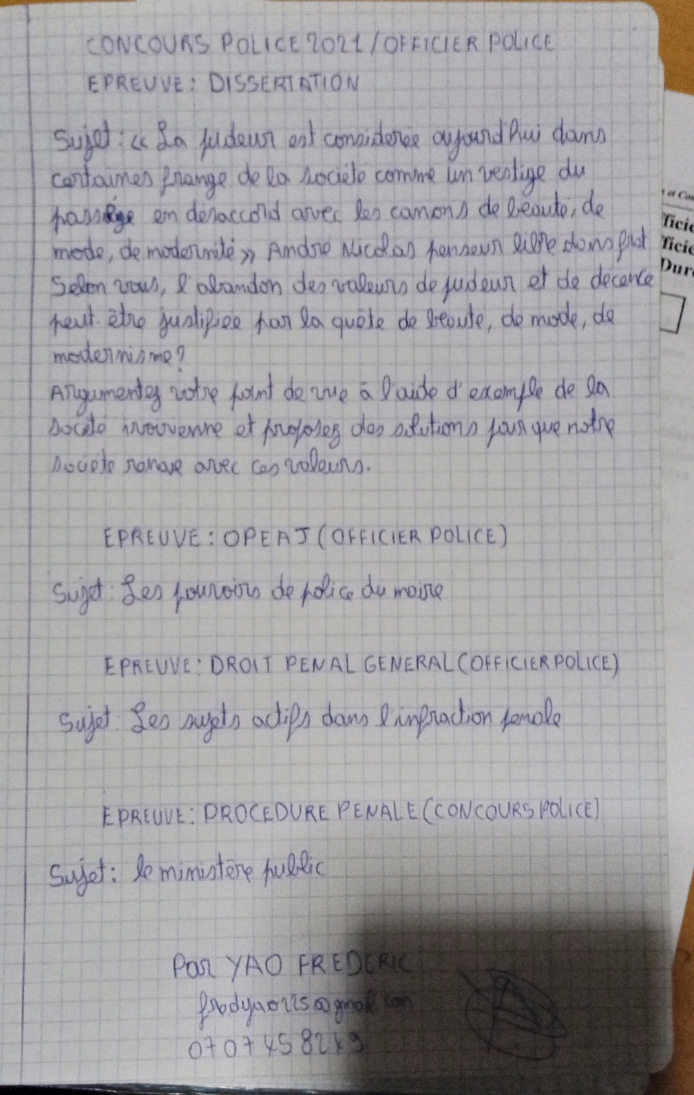 CONCOURS POLICE 2021 / OFFICIER POLICE
EPREUVE : DISSERTATION
Sujet : « La pudeur est considerée aujourd'hui dans
certaines frange de la société comme un vestige du
passé en désaccord avec les canons de beauté, de
mode, de modernité » André Nicolas penseur libre dans
Selon vous, l'abandon des valeurs de pudeur et de décence
peut-être justifiée par la quête de beaute, de mode, de
modernisme ?
Argumentez votre point de vue à l'aide d'exemple de la
société ivoirienne et proposez des solutions pour que notre
société renoue avec ces valeurs.
EPREUVE : OPEAJ (OFFICIER POLICE)
Sujet : Les pouvoirs de police du maire
EPREUVE : DROIT PENAL GENERAL (OFFICIER POLICE)
Sujet : Les sujets actifs dans l'infraction penale
EPREUVE : PROCEDURE PENALE (CONCOURS POLICE)
Sujet : le ministère public
Par YAO FREDERIC
fredyao225@gmail.com
0707458249
ficie
ficie
Dur